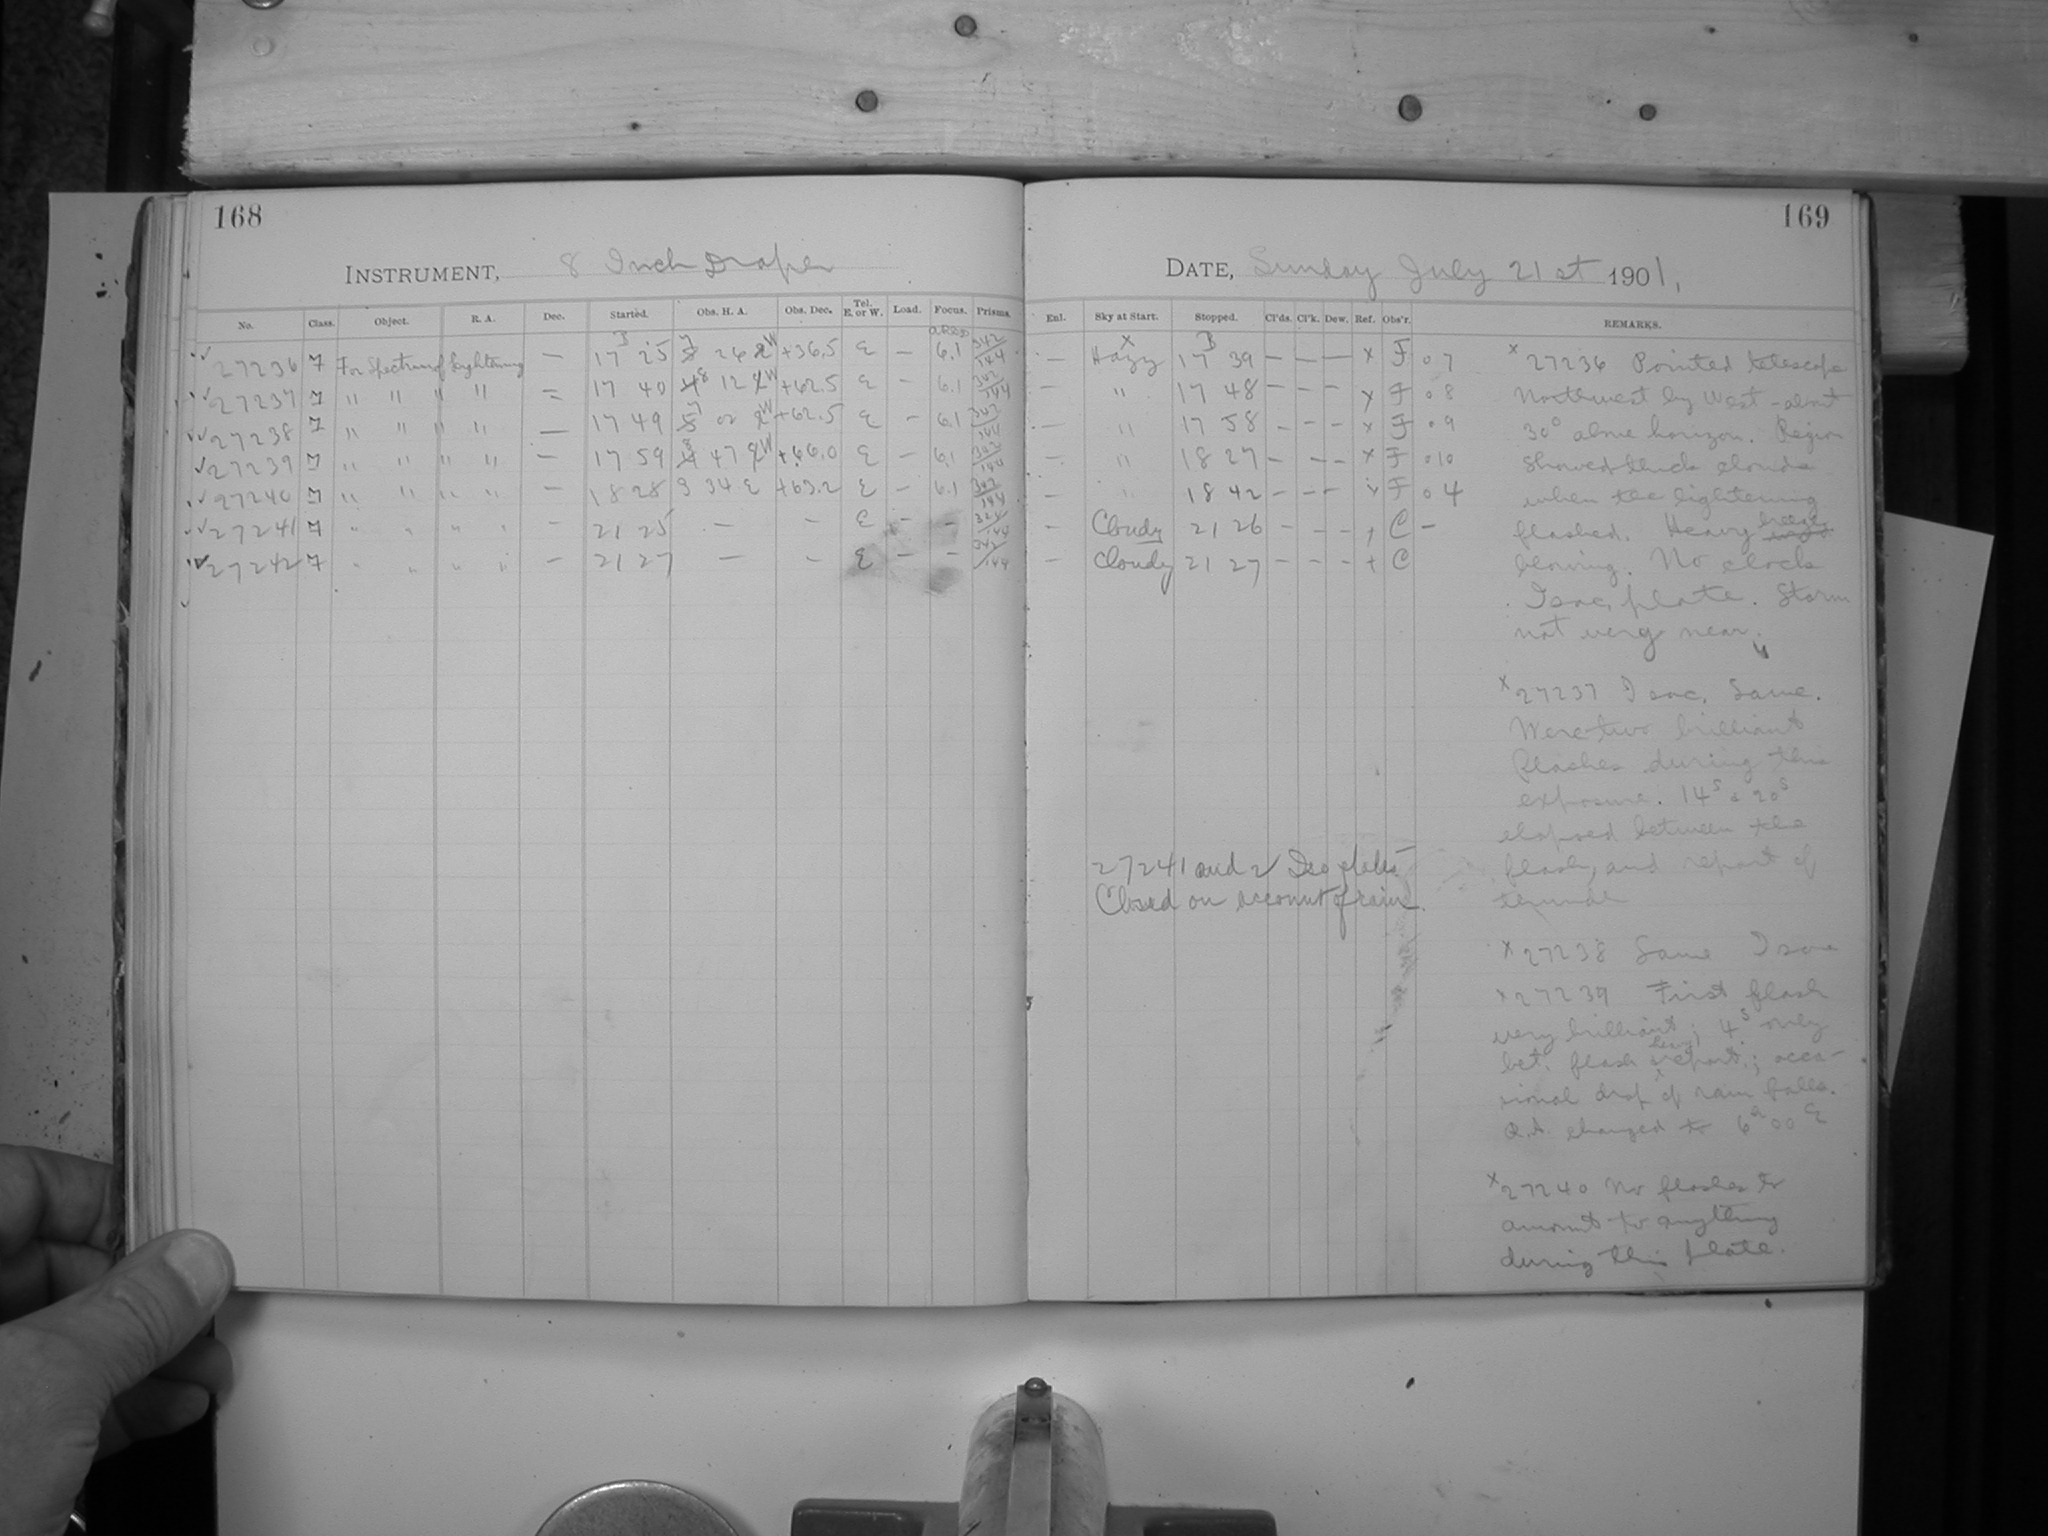 168
INSTRUMENT, 8 Inch Draper
No. Class. Object. R. A. Dec. Started. Obs. H. A. Obs. Dec. Tel. E. or W. Load. Focus. Prisms.
27236 For Spectrum of Lightening — 17 25 26 W +36.5 E — 6.1
27237 " " " " 17 40 12 W +62.5 E — 6.1
27238 " " " " — 17 49 02 W +62.5 E — 6.1
27239 " " " " — 17 59 47 W +66.0 E — 6.1
27240 " " " " — 18 28 3 34 E +63.2 E — 6.1
27241 " " " " — 21 25 — — E — —
27242 " " " " — 21 27 — — E — —
169
DATE, Sunday July 21st 1901,
Enl. Sky at Start. Stopped. Cl'ds. Cl'k. Dew. Ref. Obs'r. REMARKS.
— Hazy 17 39 — — — x F 07
— " 17 48 — — — x F 08
— " 17 58 — — — x F 09
— " 18 27 — — — x F 010
— " 18 42 — — — x F 04
— Cloudy 21 26 — — — + C —
— Cloudy 21 27 — — — + C
27241 and 2 Iso plates
Closed on account of rain.
x 27236 Pointed telescope
Northwest by West - about
30° above horizon. Region
showed thick clouds
when the lightening
flashed. Heavy breeze
blowing. No clock
Isoc. plate. Storm
not very near.
x 27237 Isoc. Same.
Were two brilliant
flashes during this
exposure. 14s & 20s
elapsed between the
flash and report of
x 27238 Same Isoc
x 27239 First flash
very brilliant; 4s only
bet. flash report; occa-
sional drop of rain falls.
changed to
x 27240 No flashes to
amount to anything
during this plate.